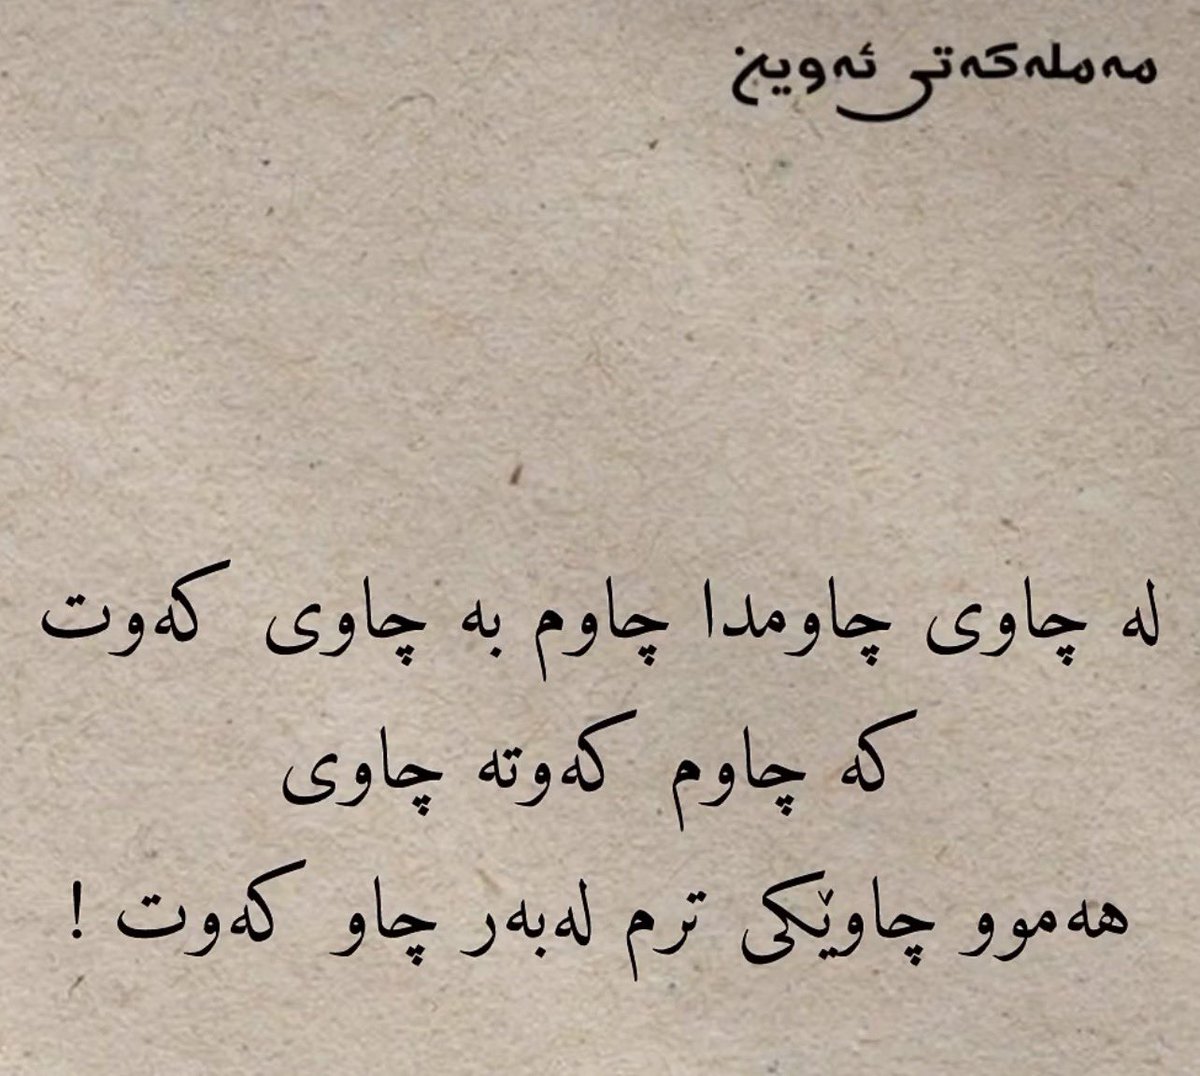 مەملەکەتی ئەوین
لە چاوی چاومدا چاوم بە چاوی کەوت
کە چاوم کەوتە چاوی
هەموو چاوێکی ترم لەبەر چاو کەوت !